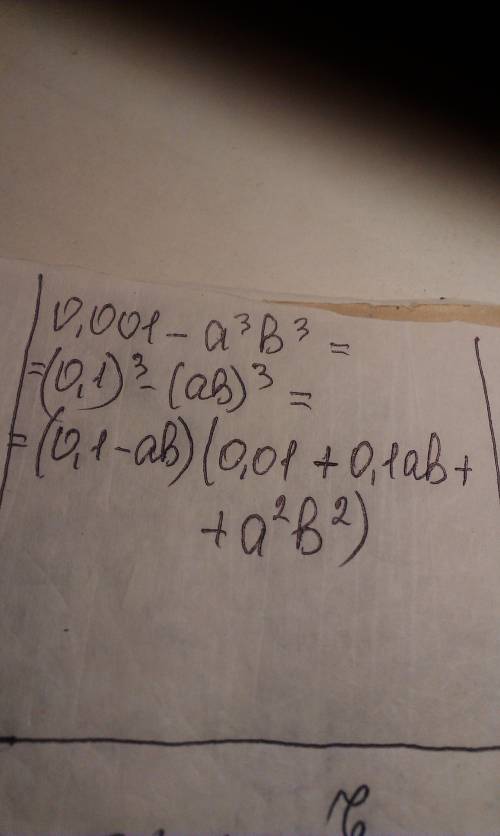 0,001 - a³b³ =
= (0,1)³ - (ab)³ =
= (0,1 - ab) (0,01 + 0,1ab +
+ a²b²)